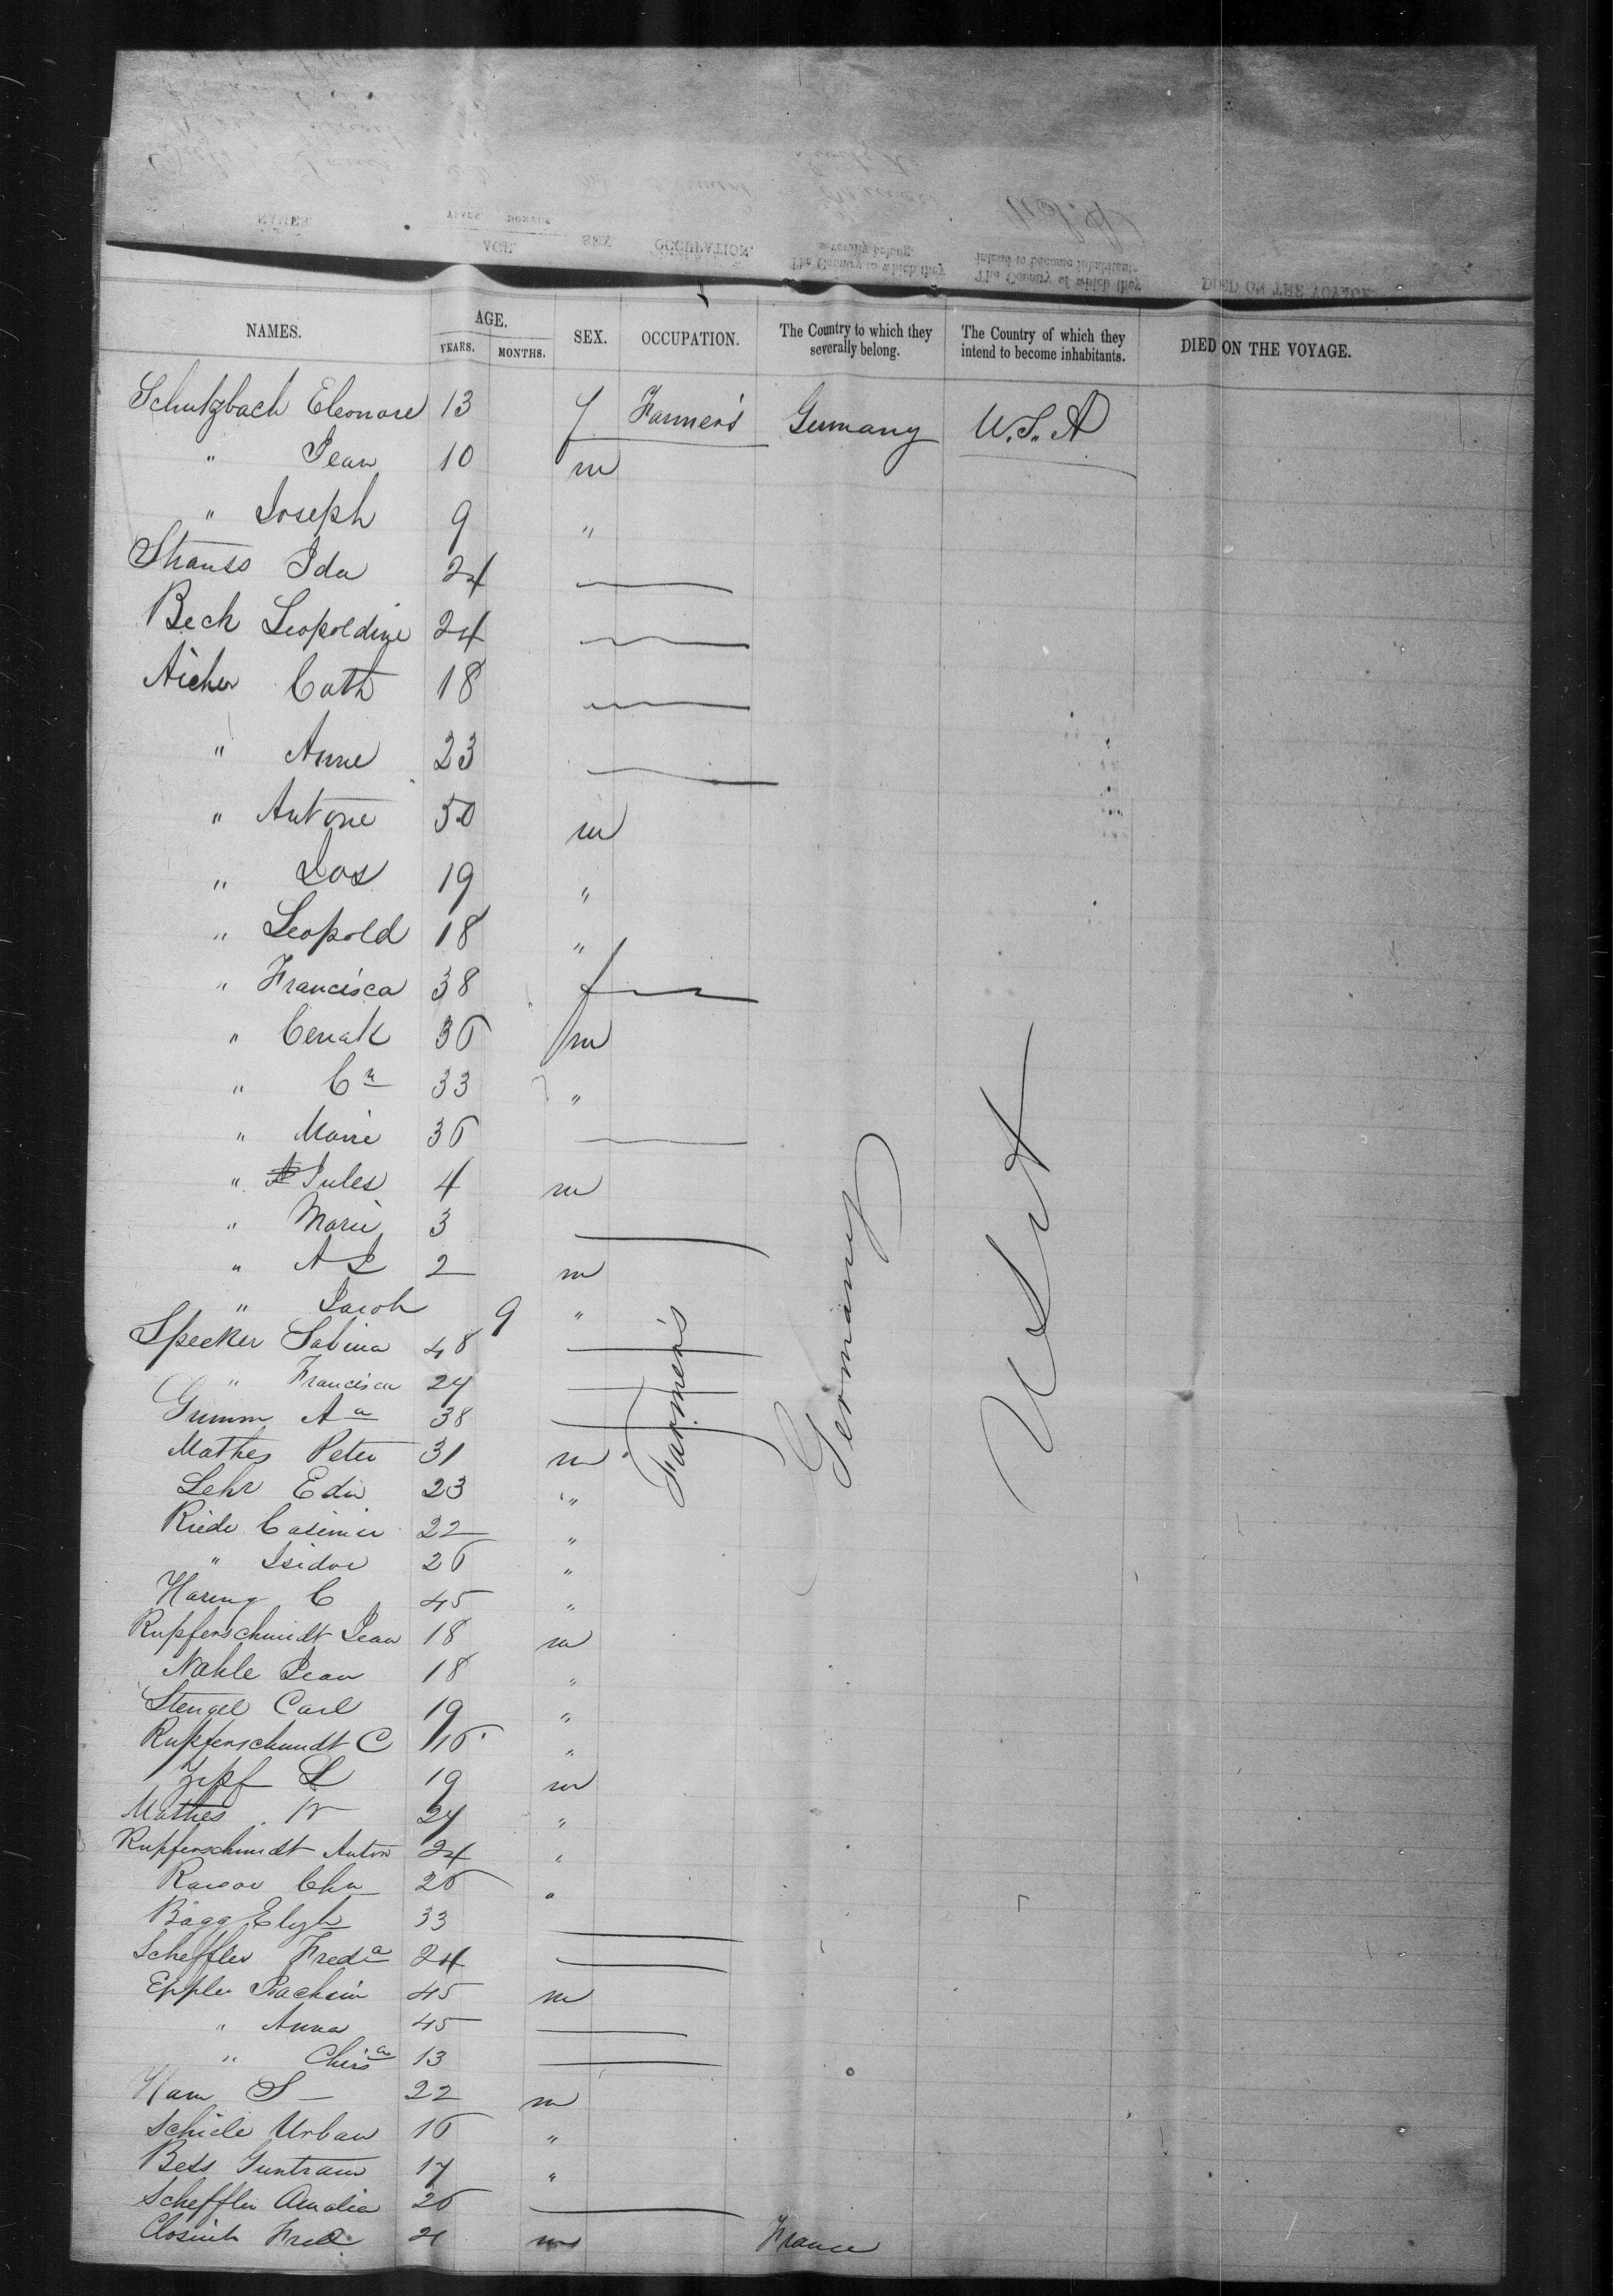 NAMES. AGE. YEARS. MONTHS. SEX. OCCUPATION. The Country to which they severally belong. The Country of which they intend to become inhabitants. DIED ON THE VOYAGE.
Schutzbach Eleonore 13 f Farmers Germany U.S.A
" Jean 10 m
" Joseph 9 "
Strauss Ida 24
Beck Leopoldine 24
Aicher Cath 18
" Anne 23
" Antone 50 m
" Jos 19 "
" Leopold 18 "
" Francisca 38 f
" 36 m
" 33 "
" Marie 36
" Jules 4 m
" Marie 3
" A J 2 m
" Jacob 9 "
Specker Sabina 48
" Francisca 27
Grumm Aa 38
Mathes Peter 31 m
Lehr Edw 23 "
Riede Casimir 22 "
" Isidor 26 "
Haring C 45 "
Farmers Germany U S A
Rupferschmidt Jean 18 m
Nahle Jean 18 "
Stengel Carl 19 "
Rupferschmidt C 16 "
Zipf L 19 m
Mathes 27 "
Rupferschmidt Anton 24 "
26 "
Bagg 33
Scheffler Freda 24
Eppler 45 m
" Anna 45
" 13
Ham S 22 m
Schiele Urban 16 "
Bets Guntram 17 "
Scheffler Amalia 26
Fred 21 m France